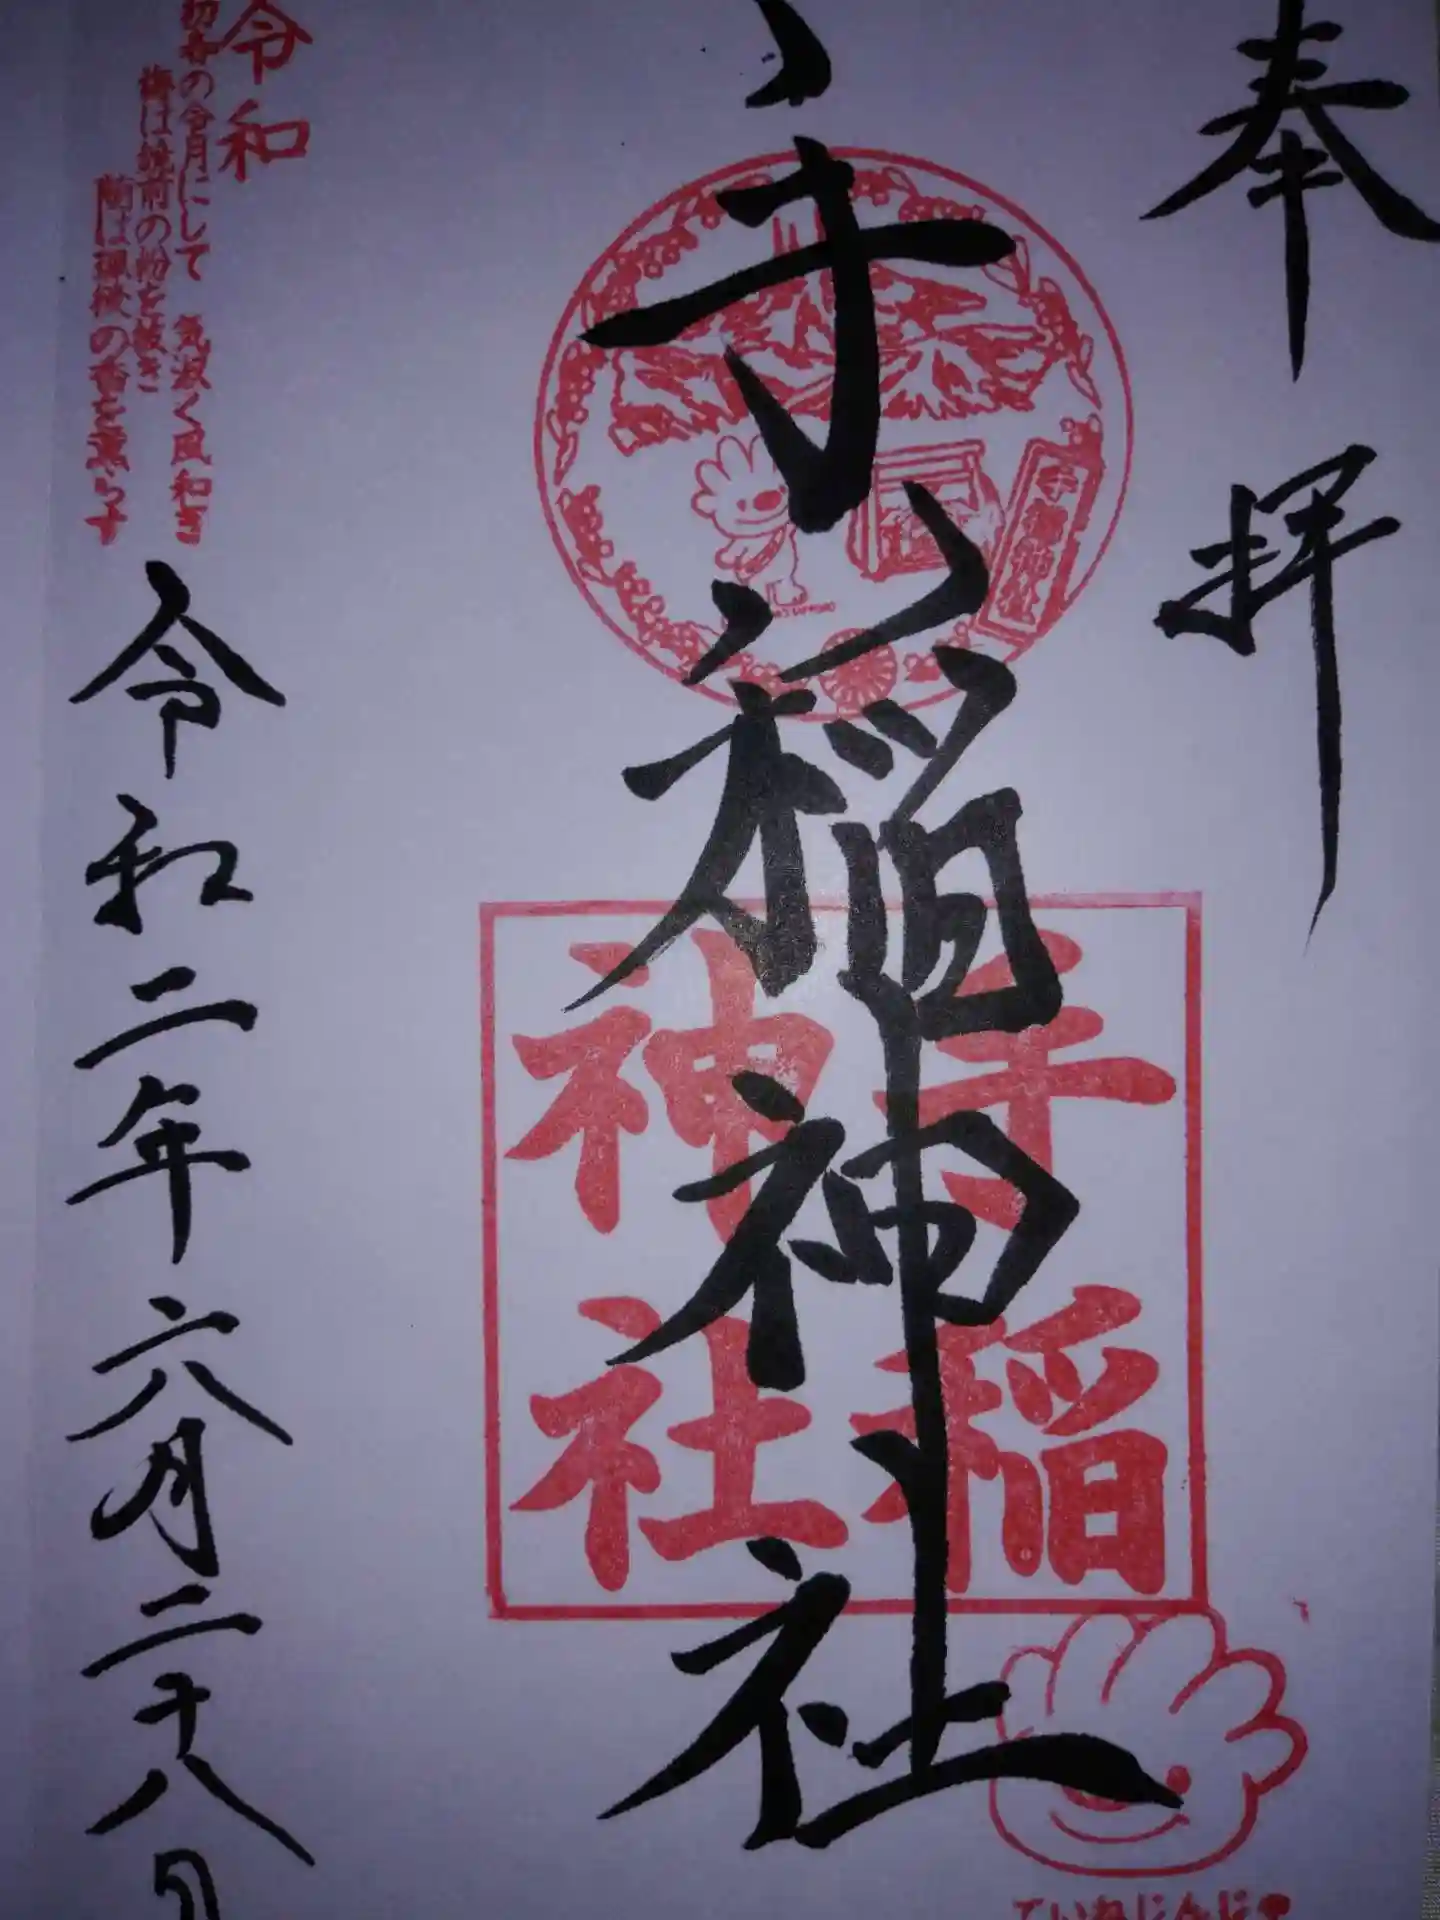 奉拝
手稲神社
手稲神社
手稲
神社
ていねじんじゃ
令和
初春の令月にして 気淑く風和ぎ
梅は鏡前の粉を披き
蘭は珮後の香を薫らす
令和二年六月二十八日